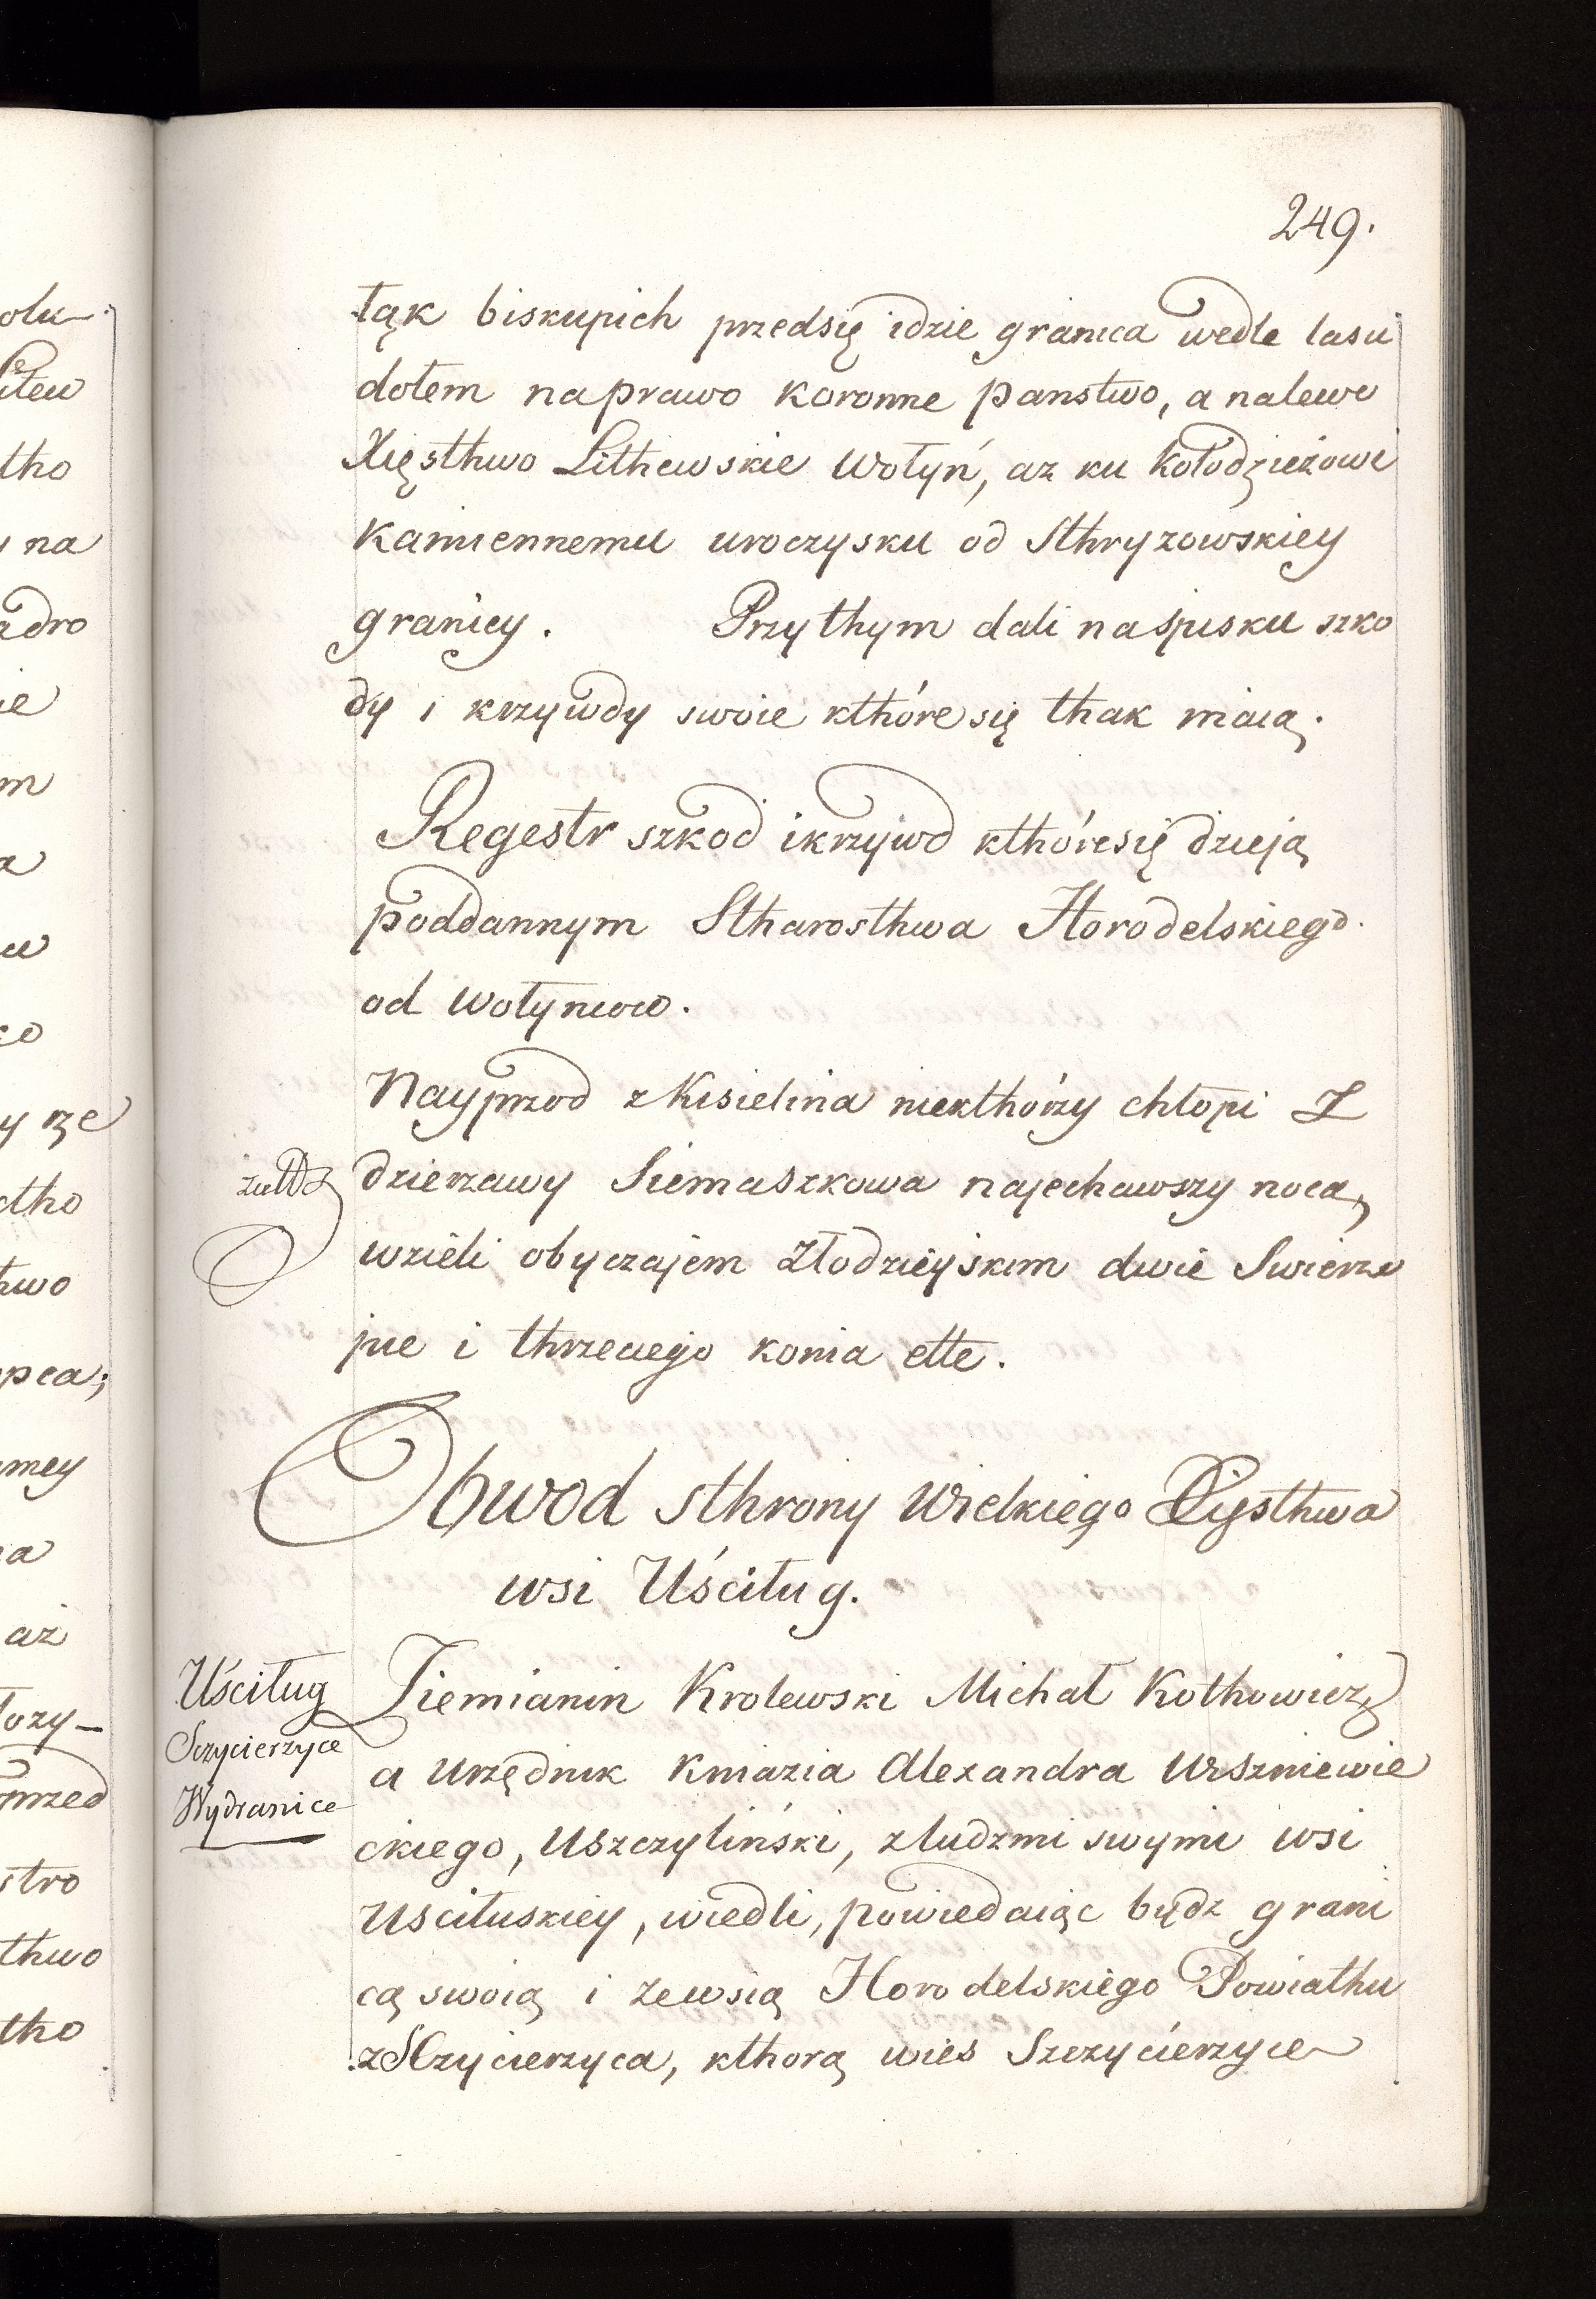 249.
łąk biskupich przedsię idzie granica wedle lasu
dołem naprawo koronne panstwo, a nalewo
Xięsthwo Lithewskie Wołyń, az ku Kołodzieżowi
Kamiennemu uroczysku od Sthryzowskiey
granicy. Przythym dali naspisku szko
dy i krzywdy swoie kthóre się thak maią.
Regestr szkod ikrzywd kthóresię dzieją
poddannym Stharosthwa Horodelskiego
od Wołyncow.
Nayprzod z Kisielina niekthórzy chłopi Z
dzierzawy Siemaszkowa najechawszy nocą,
wzieli obyczajem złodzieyskim dwie Swierze
pie i thrzeciego konia ette.
Obwod sthrony Wielkiego Xięsthwa
wsi Uściług.
Uściług
Sczycierzyce
Wydranice
Ziemianin Krolewski Michał Kothowicz,
a Urzędnik Kniazia Alexandra Wiszniewie
ckiego, Uszczyliński, zludzmi swymi wsi
Usciłuskiey, wiedli, powiedaiąc bydz grani
cą swoią i zewsią Horodelskiego Powiathu
zSczycierzyca, kthorą wies Szczycierzyce
olu
tho
na
adro
ie
m
a
ctho
two
pca;
mey
a
aż
przed
stro
thwo
tho